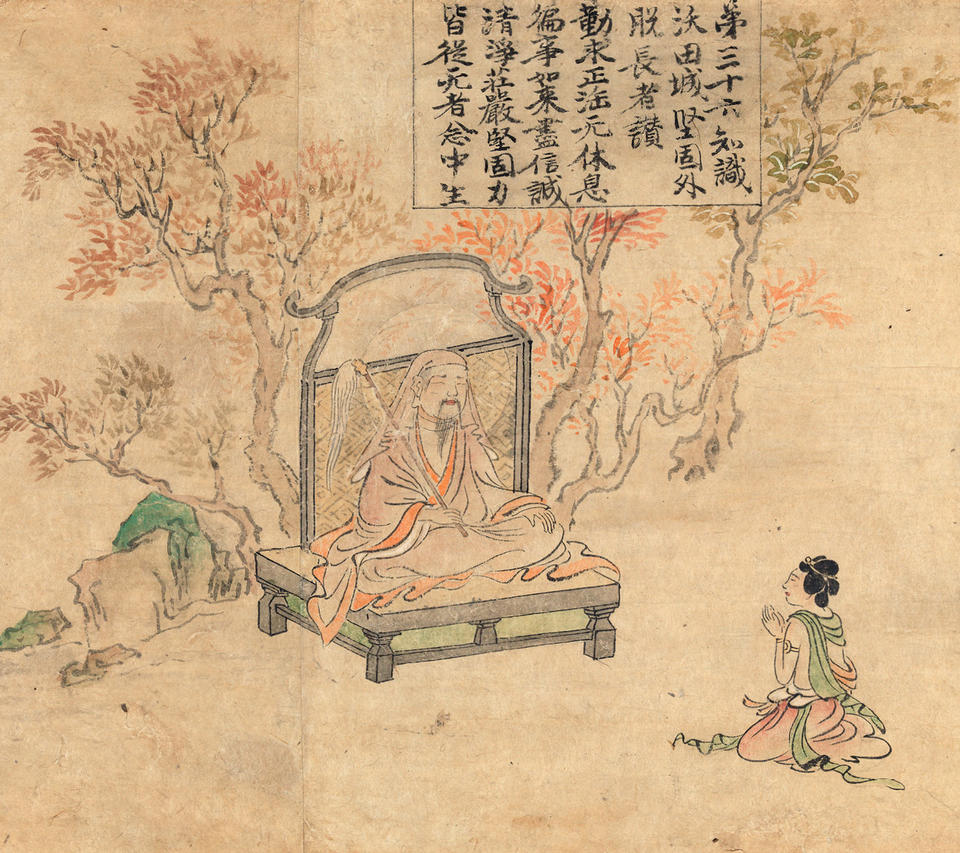 第三十六知識
沃田城坚固外
脱長者讃
勤求正法无休息
徧事如来盡信誠
清淨莊嚴堅固力
皆從无者念中生